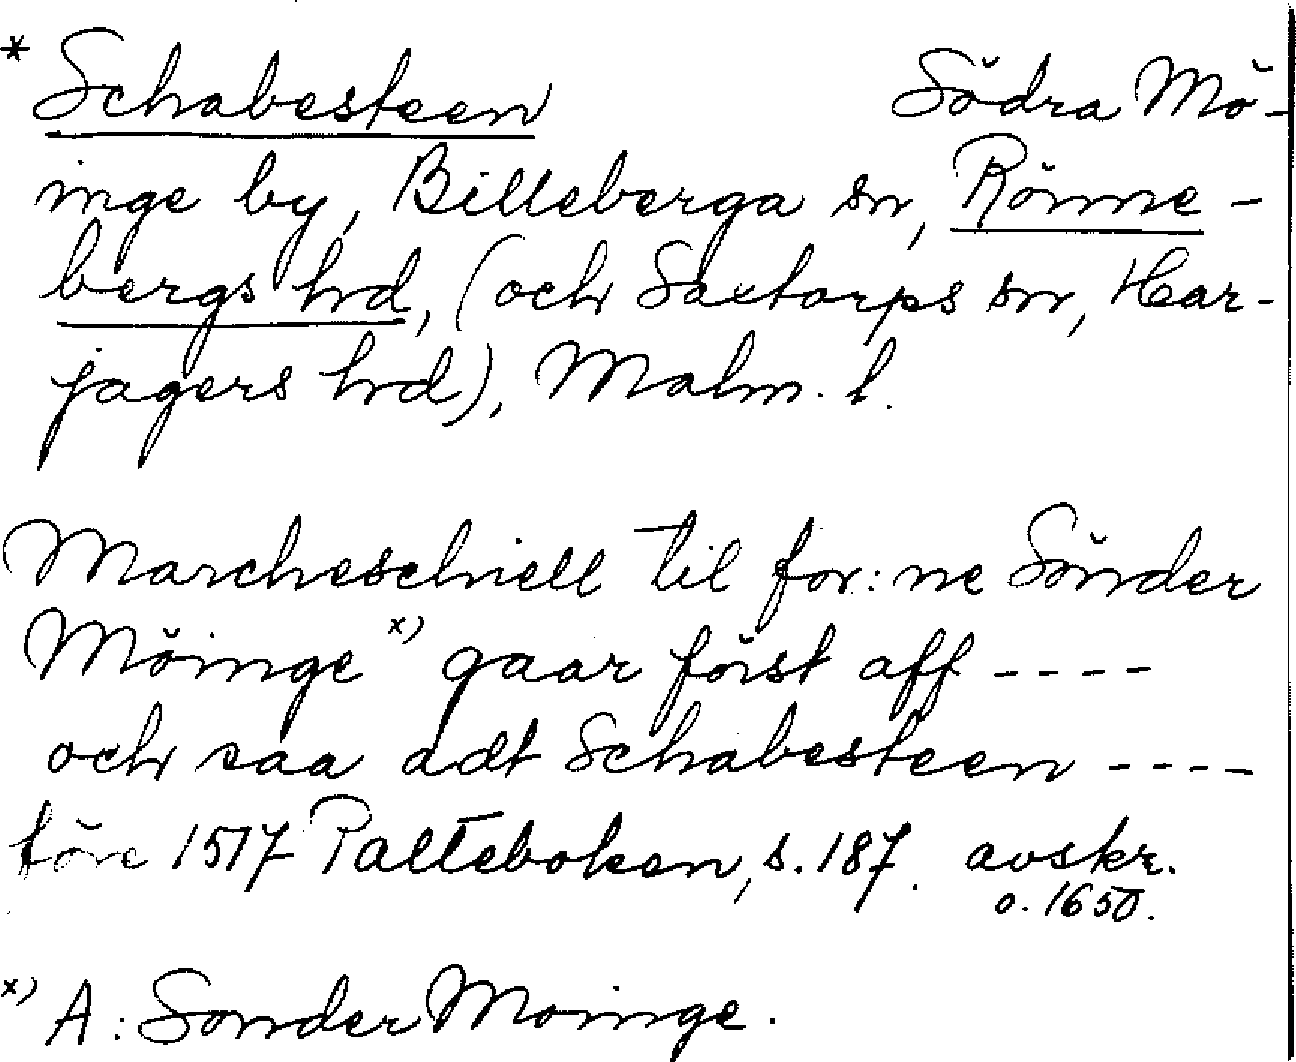 * Schabesteen Södra Mö-
inge by, Billeberga sn, Rönne-
bergs hrd, (och Saxtorps sn, Har-
jagers hrd), Malm. l.
Marcheschiell til for:ne Sönder
Möinge x) gaar först aff ----
och saa adt Schabesteen ----
före 1517 Palteboken, s. 187. avskr.
o. 1650.
x) A: Sonder Moinge.